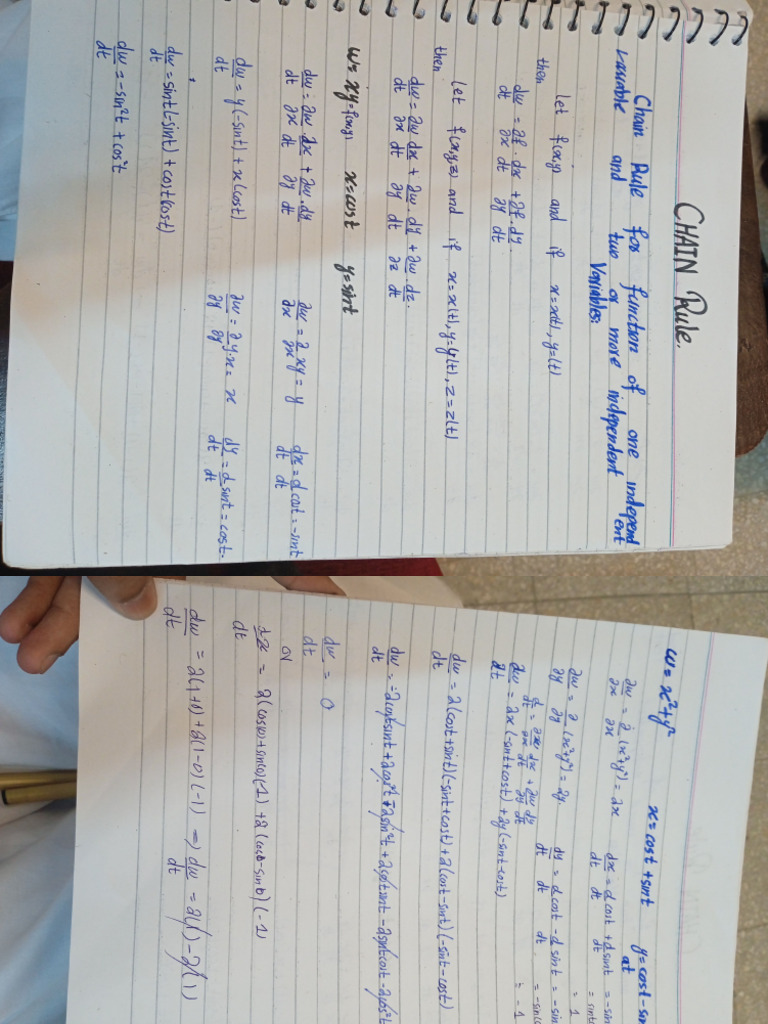 CHAIN Rule.
Chain Rule for function of one independent
variable and two or more independent
Variables:
let f(x,y) and if x=x(t), y=(t)
then
dw/dt = ∂f/∂x . dx/dt + ∂f/∂y . dy/dt.
let f(x,y,z) and if x=x(t), y=y(t), z=z(t)
then
dw/dt = ∂w/∂x dx/dt + ∂w/∂y . dy/dt + ∂w/∂z . dz/dt.
w= xy=f(x,y) x=cost y=sint
dw/dt = ∂w/∂x . dx/dt + ∂w/∂y . dy/dt ∂w/∂x = ∂/∂x xy = y dx/dt = d/dt cost = -sint
dw/dt = y(-sint) + x(cost) ∂w/∂y = ∂/∂y y.x = x dy/dt = d/dt sint = cost.
dw/dt = sint(-sint) + cost(cost)
dw/dt = -sin²t + cos²t
w= x²+y² x=cost+sint y=cost-sin
at
∂w/∂x = ∂/∂x (x²+y²) = 2x dx/dt = d/dt cost + d/dt sint = -sin
∂w/∂y = ∂/∂y (x²+y²) = 2y dy/dt = d/dt cost - d/dt sint = -sin
= 1
dw/dt = 2x(-sint+cost) + 2y(-sint-cost) = -1
dw/dt = 2(cost+sint)(-sint+cost) + 2(cost-sint)(-sint-cost)
dw/dt = 0
or
dw/dt = 2(1+0) + 2(1-0)(-1) => dw/dt = 2(1) - 2(1)